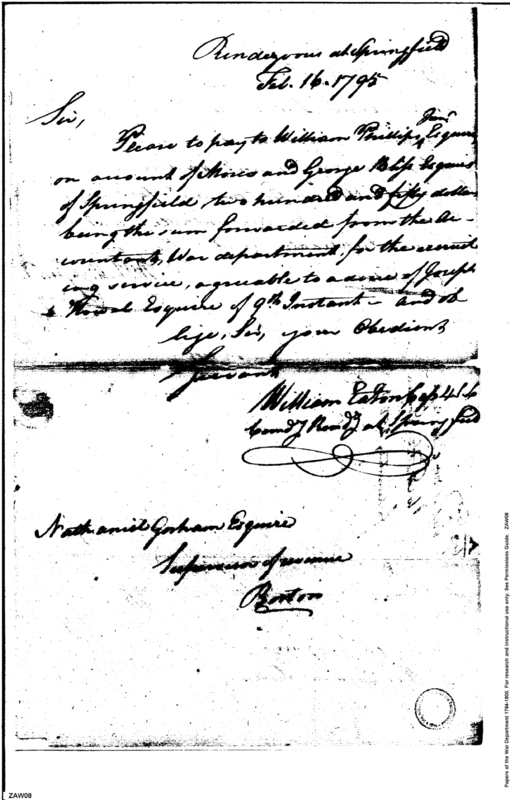 Rendezvous at Springfield
Feb. 16. 1795
Sir,
Please to pay to William Phillips Junr Esquire
on account of Moses and George Bliss Esquires
of Springfield two hundred and fifty dollars
being the sum forwarded from the Ac-
countant, War department, for the recruit
ing service, agreable to advice of Joseph
Howel Esquire of 9th Instant – and ob
lige, Sir, your Obedient
Servant
William Eaton Capt 4 S L
Comdg Rendz at Springfield
Nathaniel Gorham Esquire
Supervisor of revenue
Boston
ZAW08
Papers of the War Department 1784-1800. For research and instructional use only. See Permissions Guide. ZAW08